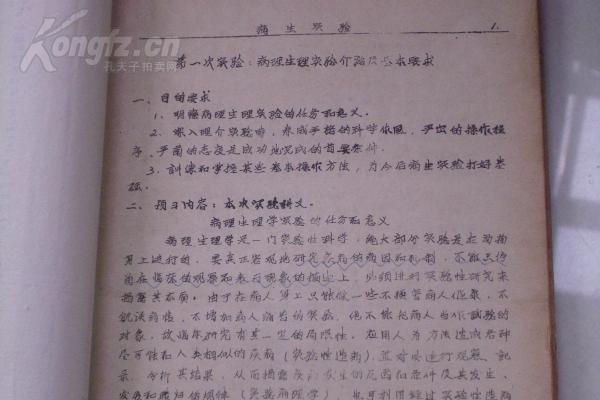 Kongfz.cn
孔夫子拍卖网
病生实验 1.
第一次实验：病理生理实验介绍及基本要求
一、目的要求
1、明瞭病理生理实验的任务和意义．
2、深入理介实验，养成严格的科学作风，严密的操作程
序，严肃的态度是成功地完成的首要条件．
3、训练和掌握某些基本操作方法，为今后病生实验打好基
础．
二、预习内容：本次实验讲义．
病理生理学实验的任务和意义
病理生理学是一门实验性科学，绝大部分实验是在动物
身上进行的，要真正客观地研究疾病的病因和机制，不能只停
留在临床的观察和表面现象的描述上，必须进行实验性研究来
揭露其本质．由于在病人身上只能做一些不损害病人健康、不
躭误治疗、不增加病人痛苦的实验，但不能把病人当做试验的
对象，故临床研究有其一定的局限性．应用人为方法造成各种
尽可能和人类相似的疾病（实验性造病），并对其进行观察、记
录、分析其结果，从而揭露疾病发生的原因和条件及其发生、
发展和